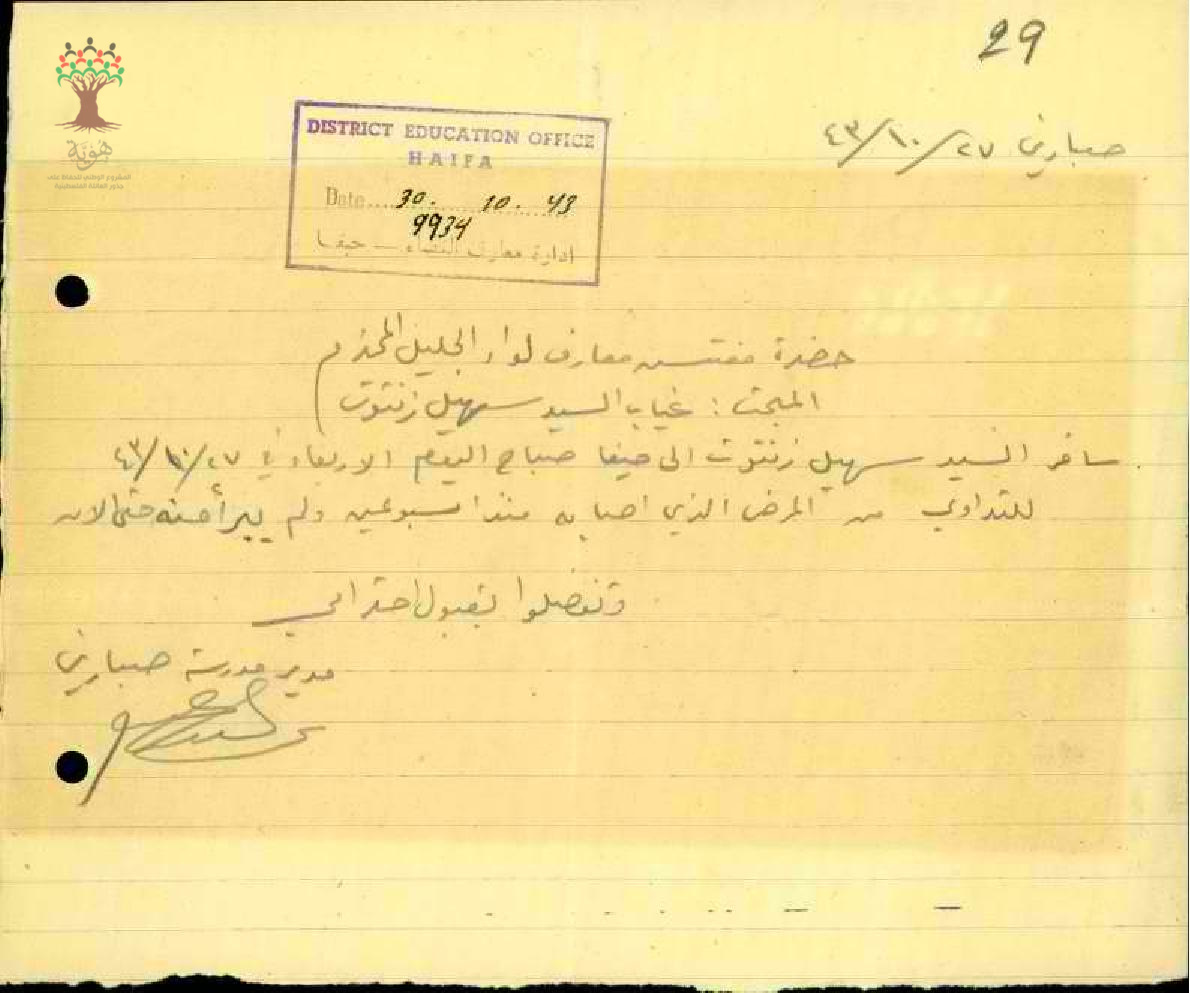 29
صبارين ٢٧/١٠/٤٣
DISTRICT EDUCATION OFFICE
HAIFA
Date.... 30. 10. 43
9934
ادارة معارف القضاء — حيفا
هوية
المشروع الوطني للحفاظ على
جذور العائلة الفلسطينية
حضرة مفتش معارف لواء الجليل المحترم
المبحث : غياب السيد سهيل زنتوت
سافر السيد سهيل زنتوت الى حيفا صباح اليوم الاربعاء في ٢٧/١٠/٤٣
للتداوي من المرض الذي اصابه منذ اسبوعين ولم يبرأ منه حتى الان
وتفضلوا بقبول احترامي
مدير مدرسة صبارين